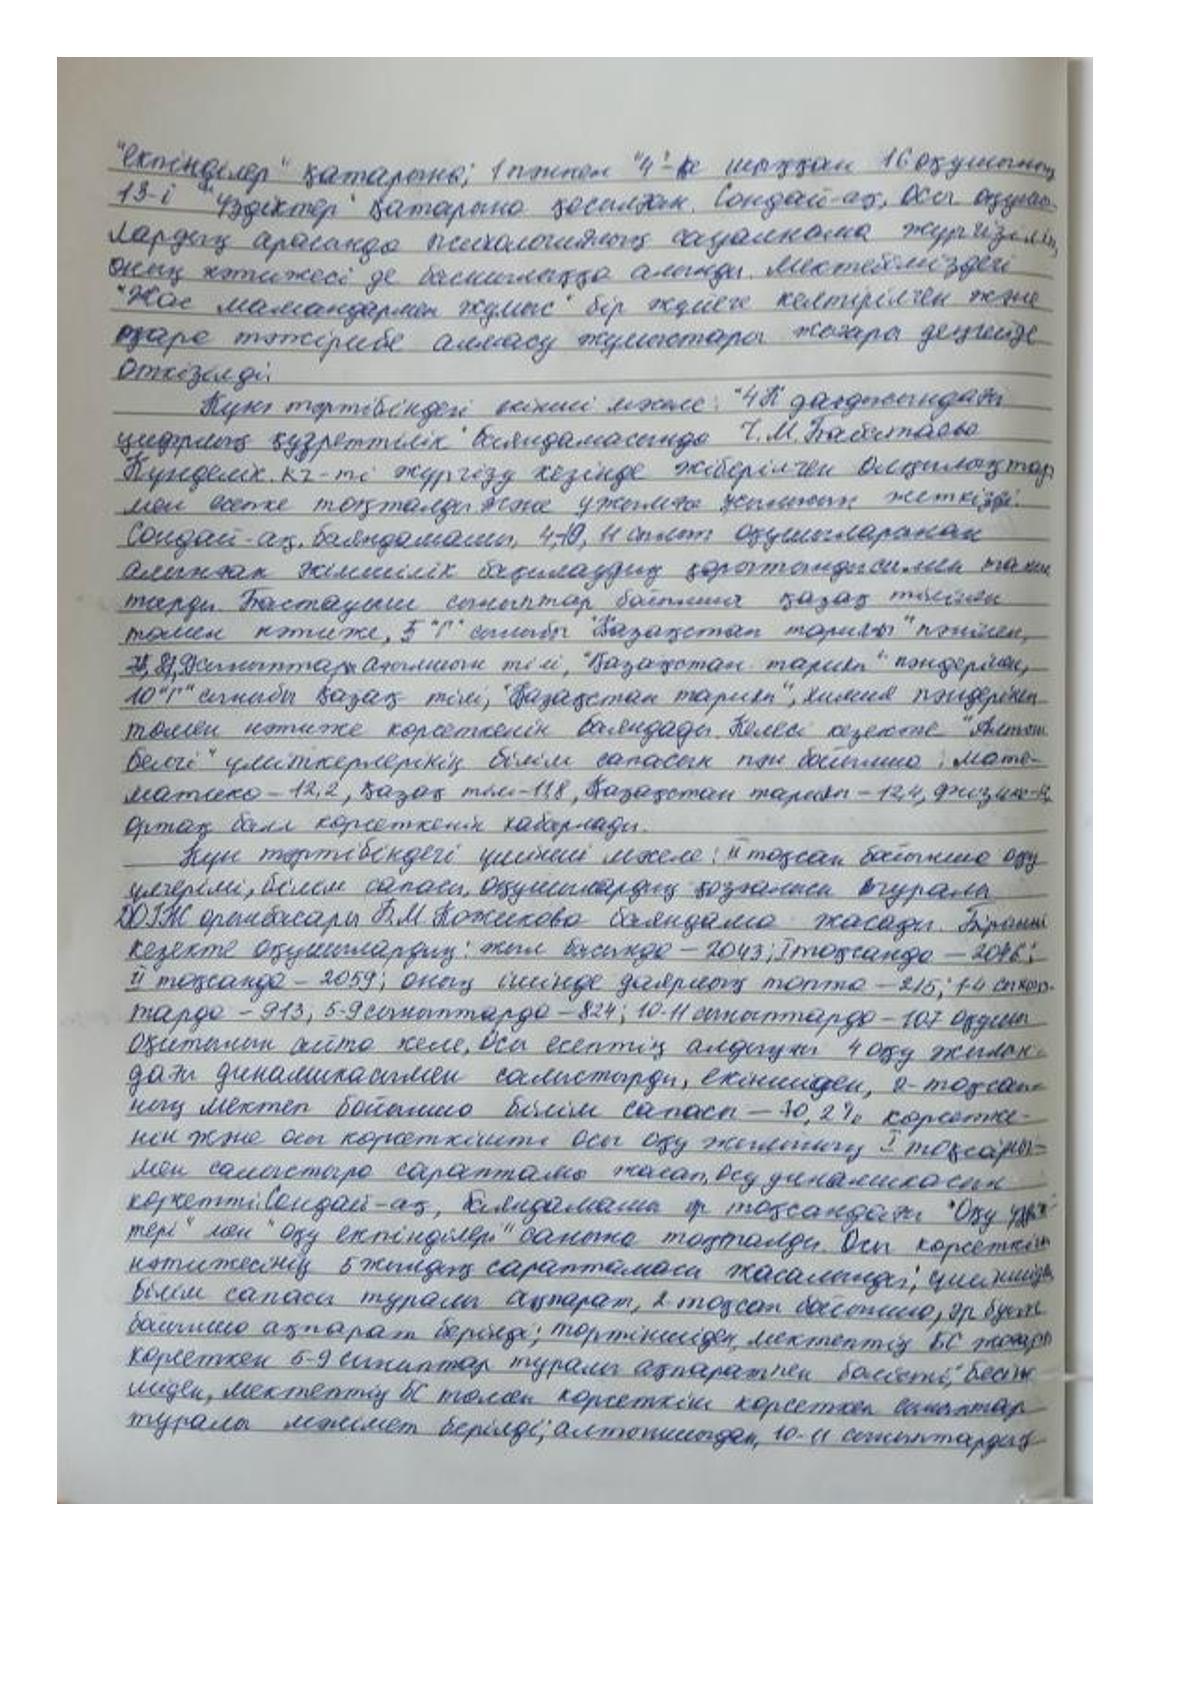 "екпінділер" қатарына; 1 пәннен "4"-ке шыққан 16 оқушының
13-і "Үздіктер" қатарына қосылған. Сондай-ақ, осы оқушы-
лардың арасында психологиялық сауалнама жүргізіліп,
оның нәтижесі де басшылыққа алынды. Мектебіміздегі
"Жас мамандармен жұмыс" бір жүйеге келтірілген және
өзара тәжірибе алмасу жұмыстары жоғары деңгейде
өткізілді.
Күн тәртібіндегі екінші мәселе: "4К дағдысындағы
цифрлық құзреттілік" баяндамасында Г.М.
Күнделік.kz-ті жүргізу кезінде жіберілген олқылықтар
мен есепке тоқталды және ұжымға жеткізді.
Сондай-ақ, баяндамашы, 4,9, 11 сынып оқушыларынан
алынған әкімшілік бақылаудың қорытындысымен таныс
тырды. Бастауыш сыныптар бойынша қазақ тілінен
төмен нәтиже, 5 "Г" сыныбы "Қазақстан тарихы" пәнінен,
сыныптары ағылшын тілі, "Қазақстан тарихы" пәндерінен,
10 "Г" сыныбы қазақ тілі, "Қазақстан тарихы", химия пәндерінен
төмен нәтиже көрсеткенін баяндады. Келесі кезекте "Алтын
белгі" үміткерлерінің білім сапасын пән бойынша: мате-
матика – 12,2, қазақ тілі – 11,8, Қазақстан тарихы – 12,4, физика –
ортақ балл көрсеткенін хабарлады.
Күн тәртібіндегі үшінші мәселе: II тоқсан бойынша оқу
үлгерімі, білім сапасы, оқушылардың қозғалысы туралы
ДОІЖ орынбасары Б.М. Кожикова баяндама жасады. Бірінші
кезекте оқушылардың: жыл басында – 2043; I тоқсанда – 2046;
II тоқсанда – 2059; оның ішінде даярлық топта – 215; 1-4 сынып-
тарда – 913, 5-9 сыныптарда – 824; 10-11 сыныптарда – 107 оқушы
оқитынын айта келе, осы есептің алдыңғы 4 оқу жылын-
дағы динамикасымен салыстырды, екіншіден, 2-тоқсан-
ның мектеп бойынша білім сапасы – 70,2% көрсетке-
нін және осы көрсеткішті осы оқу жылының I тоқсаны-
мен салыстыра сараптама жасап, өсу динамикасын
көркетті. Сондай-ақ, баяндамашы әр тоқсандағы "Оқу үздік-
тері" мен "оқу екпінділері" санына тоқталды. Осы көрсеткіш
нәтижесінің 5 жылдық сараптамасы жасалынды; үшіншіден
білім сапасы туралы ақпарат, 2-тоқсан бойынша, әр буын
бойынша ақпарат берілді; төртіншіден, мектептің БС жоғары
көрсеткен 5-9 сыныптар туралы ақпаратпен бөлісті; бесін-
шіден, мектептің БС төмен көрсеткіш көрсеткен сыныптар
туралы мәлімет берілді; алтыншыдан, 10-11 сыныптардың